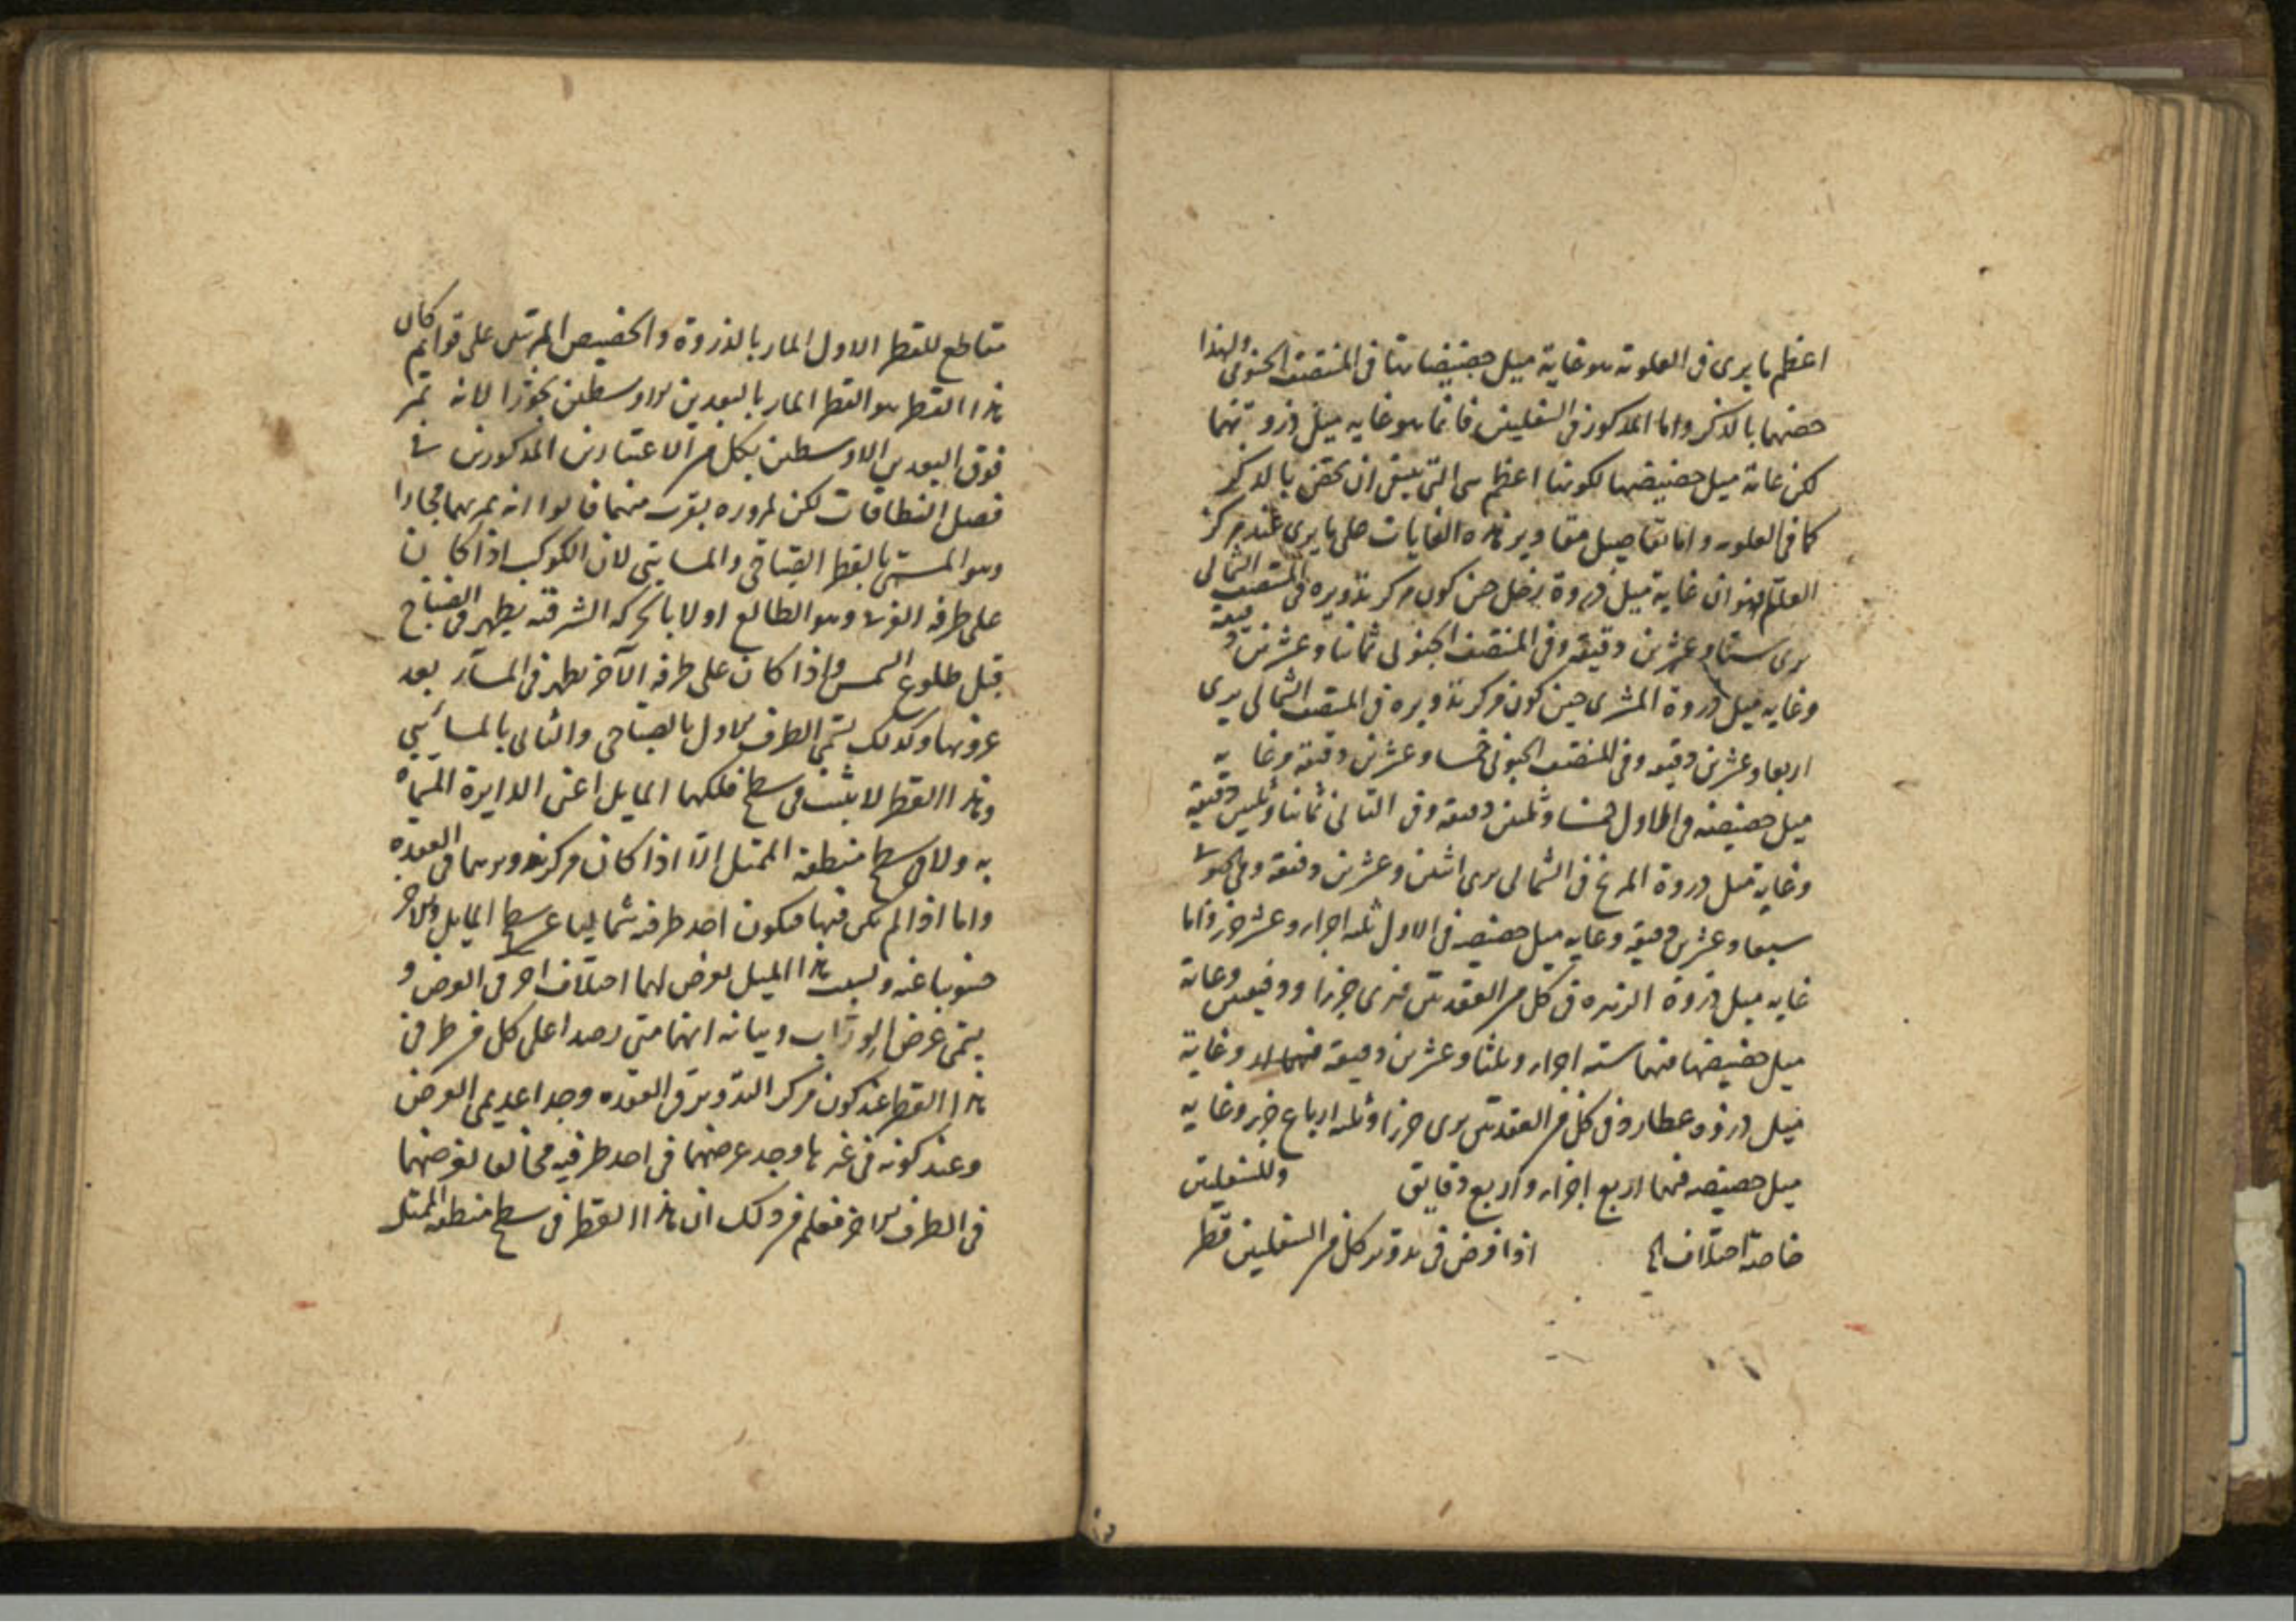 اعظم ما يرى فى العلوية هو غاية ميل حضيضاتها فى المنتصف الجنوبى ولهذا
خصهما بالذكر واما المذكور فى السفليين فانما هو غايه ميل ذروتهما
لكن غاية ميل حضيضهما لكونها اعظم هى التى ينبغى ان تختص بالذكر
كما فى العلويه واما تفاصيل مقادير هذه الغايات على ما يرى عند مركز
العالم فهو ان غاية ميل ذروة زحل حين كون مركز تدويره فى المنتصف الشمالى
يرى ستا وعشرين دقيقة وفى المنتصف الجنوبى ثمانيا وعشرين دقيقة
وغايه ميل ذروة المشترى حين كون مركز تدويره فى المنتصف الشمالى يرى
اربعا وعشرين دقيقه وفى المنتصف الجنوبى خمسا وعشرين دقيقة وغايه
ميل حضيضه فى الاول خمسا وثلثين دقيقة وفى الثانى ثمانيا وثلثين دقيقة
وغاية ميل ذروة المريخ فى الشمالى يرى اثنين وعشرين دقيقة وفى الجنوبى
سبعا وعشرين دقيقة وغايه ميل حضيضه فى الاول ثلثه اجزاء وعشر جزء واما
غايه ميل ذروة الزهره فى كل من العقدتين فيرى جزءا ودقيقتين وغاية
ميل حضيضها فيهما سته اجزاء وثلثا وعشرين دقيقة وغاية
ميل ذروه عطارد فى كل من العقدتين يرى جزءا وثلثه ارباع جزء وغايه
ميل حضيضه فيهما اربع اجزاء واربع دقايق وللسفليين
خاصة اختلاف اذا فرض فى تدوير كل من السفليين قطر
مقاطع للقطر الاول المار بالذروة والحضيض المرئيين على قوايم كان
هذا القطر هو القطر المار بالبعدين الاوسطين تجوزا لانه تمر
فوق البعدين الاوسطين بكل من الاعتبارين المذكورين فى
فصل النطاقات لكن لمروره بقرب منهما قالوا انه يمر بهما مجازا
وهو المسمى بالقطر الصباحى والمسايى لان الكوكب اذا كان
على طرفه الغربى وهو الطالع اولا بالحركه الشرقيه يظهر فى الصباح
قبل طلوع الشمس واذا كان على طرفه الآخر يظهر فى المسآء بعد
غروبها وكذلك يسمى الطرف الاول بالصباحى والثانى بالمسائيى
وهذا القطر لا يثبت فى سطح فلكهما المايل اعنى الدايرة المسماة
به ولا فى سطح منطقة الممثل الا اذا كان مركز تدويرهما فى العقده
واما اذا لم يكن فيها فيكون احد طرفيه شماليا عن سطح المايل والآخر
جنوبيا عنه وبسبب هذا الميل يعرض لهما اختلاف آخر فى العرض و
يسمى عرض الوراب وبيانه انهما متى رصدا على كل من طرفى
هذا القطر عند كون مركز التدوير فى العقده وجدا عديمى العرض
وعند كونه فى غيرها وجد عرضهما فى احد طرفيه مخالفا لعرضهما
فى الطرف الاخر فعلم من ذلك ان هذا القطر فى سطح منطقه الممثل